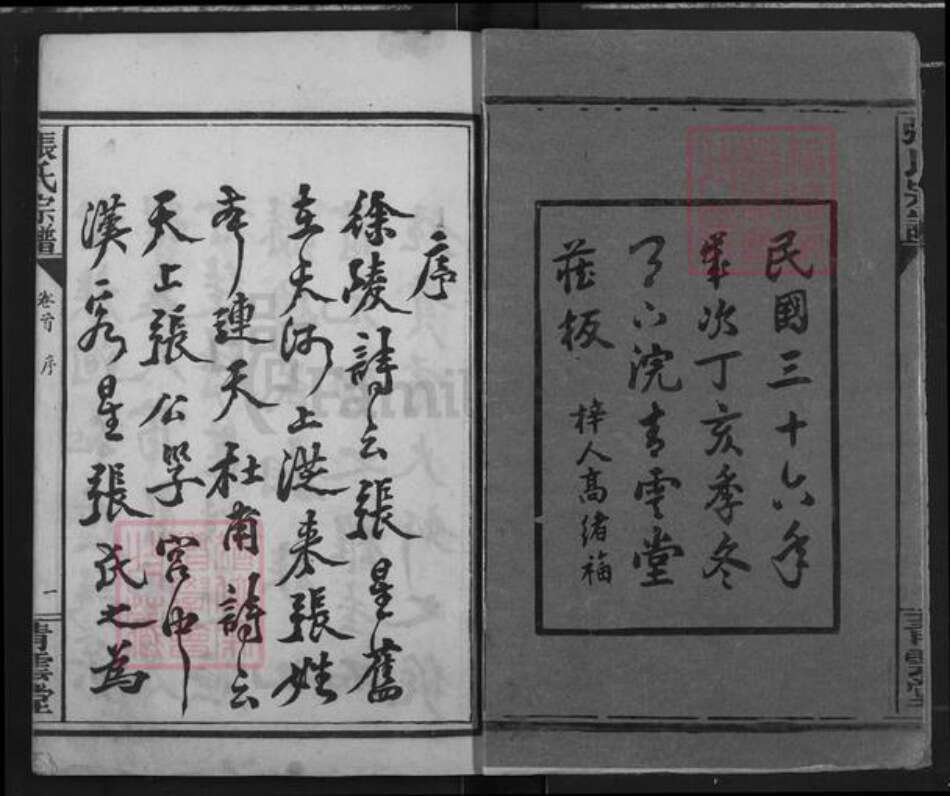 民國三十六年
歲次丁亥季冬
月下浣青雲堂
莊板
梓人高緒福
序
徐陵詩云張星舊
在天河上從來張姓
本連天杜甫詩云
天上張公子宮中
漢客星張氏之為
張氏宗譜
卷首 序
一
青雲堂